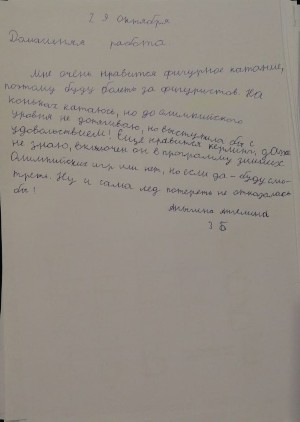 23 октября
Домашняя работа
Мне очень нравится фигурное катание,
поэтому буду болеть за фигуристов. На
коньках катаюсь, но до олимпийского
уровня не дотягиваю, но выступила бы с
удовольствием! Ещё нравится керлинг, даже
не знаю, включен он в программу зимних
Олимпийских игр или нет, но если да - буду смо-
треть. Ну и сама лед потереть не отказалась
бы!
Ангелина
7 Б